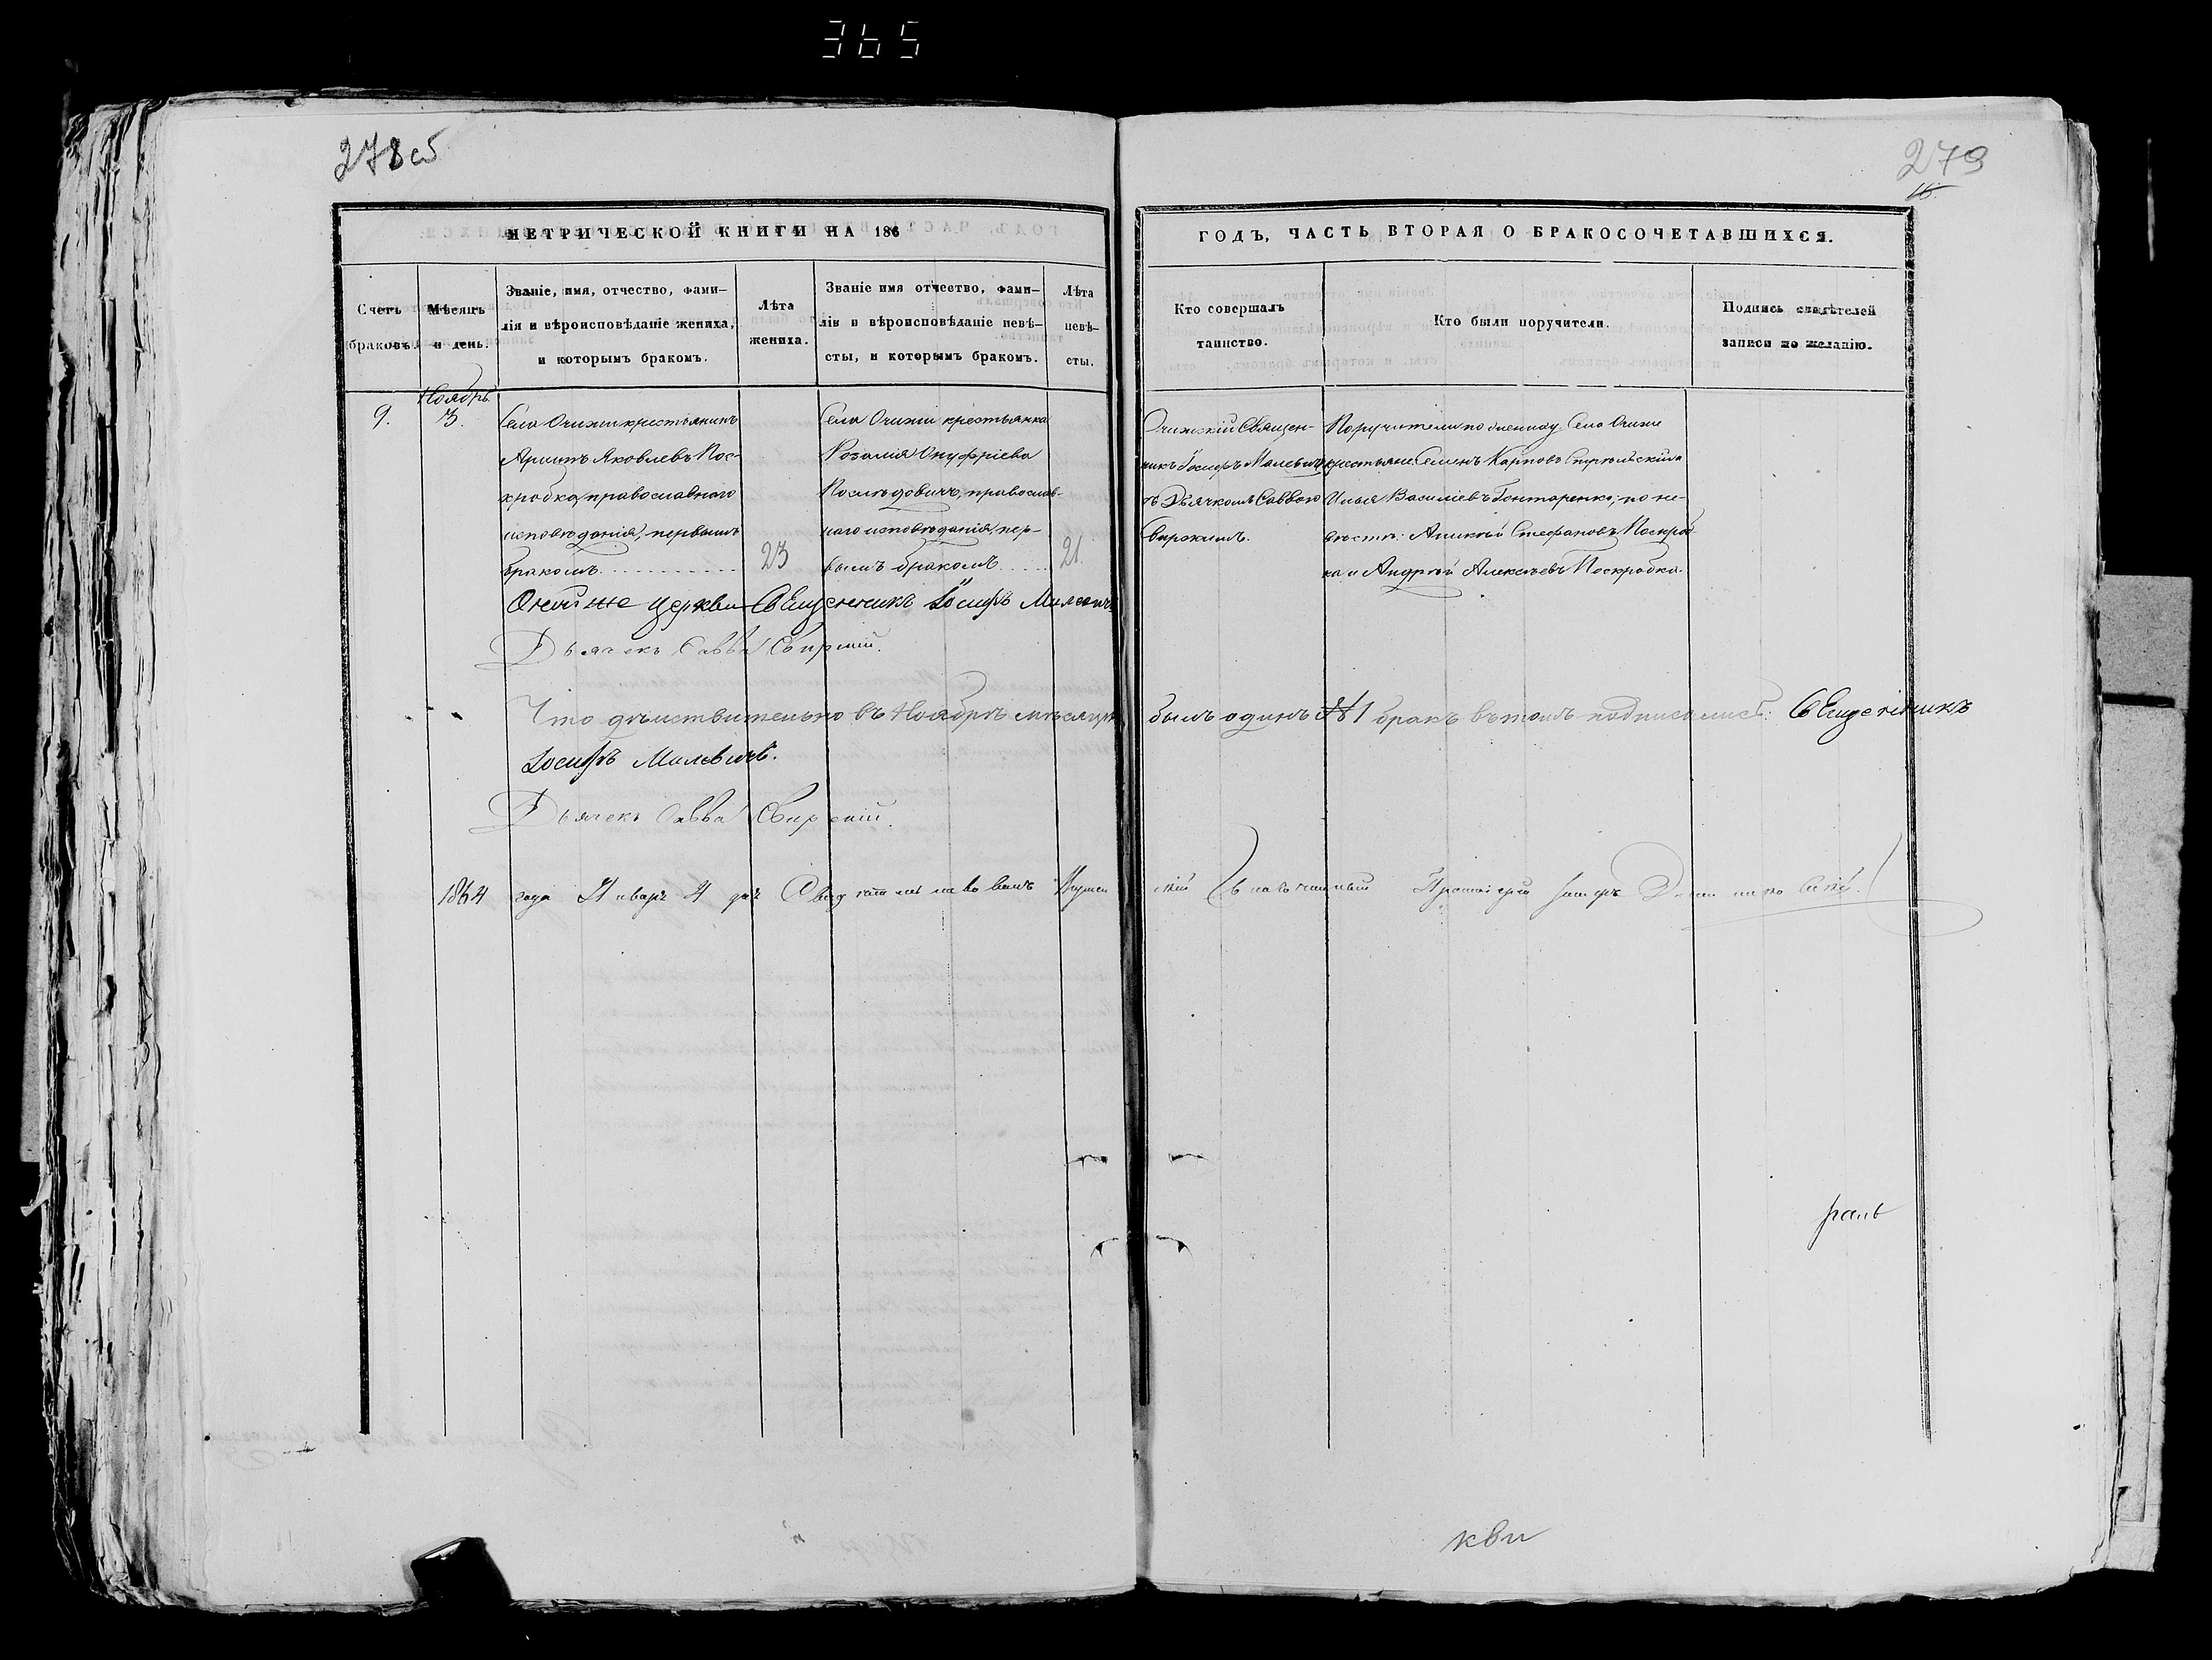 365
278 об
279
16.
МЕТРИЧЕСКОЙ КНИГИ НА 186
ГОДЪ, ЧАСТЬ ВТОРАЯ О БРАКОСОЧЕТАВШИХСЯ.
Счетъ
браковъ.
Мѣсяцъ
и день.
Званіе, имя, отчество, фами-
лія и вѣроисповѣданіе жениха,
и которымъ бракомъ.
Лѣта
жениха.
Званіе имя отчество, фами-
лія и вѣроисповѣданіе невѣ-
сты, и которымъ бракомъ.
Лѣта
невѣ-
сты.
Кто совершалъ
таинство.
Кто были поручители.
Подпись свидѣтелей
записи по желанію.
9.
Ноябрь
3.
Села крестьянинъ
Яковлевъ Пос-
кробка, православнаго
исповѣданія, первымъ
бракомъ
23
Села крестьянка
Розалія Онуфріева
православ-
наго исповѣданія, пер-
вымъ бракомъ
21.
Священ-
никъ Іосифъ Малевичъ
съ Дьячкомъ Саввою
Свирскимъ.
Поручители по жениху: Села
крестьяне Семенъ Карповъ
Илья Василіевъ Гонтаренко; по не-
вѣстѣ: Стефановъ Поскроб-
ка и Андрей Алексѣевъ Поскробка.
церкви Священникъ Іосифъ Малевичъ
Дьячекъ Савва Свирскій.
Что дѣйствительно въ Ноябрѣ мѣсяцѣ былъ одинъ №1 бракъ въ томъ подписались: Священникъ
Іосифъ Малевичъ.
Дьячекъ Савва Свирскій.
1864 года Январь 4 дня Свидѣтельствовалъ Благочинный Протоіерей
кви